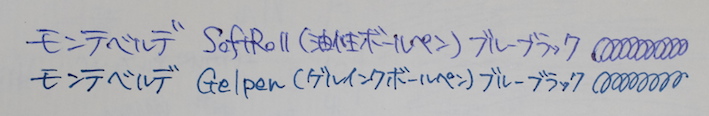 モンテベルデ SoftRoll (油性ボールペン) ブルーブラック
モンテベルデ Gelpen (ゲルインクボールペン) ブルーブラック